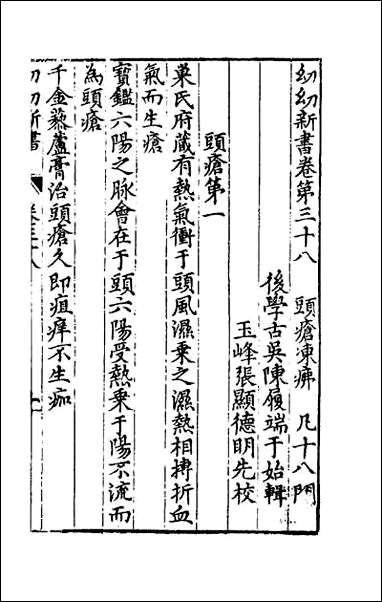 幼幼新書卷第三十八　頭瘡凍疿　凡十八門
後學古吳陳履端于始輯
玉峰張顯德明先校
頭瘡第一
巢氏府蔵有熱氣衝于頭風濕乗之濕熱相搏折血
氣而生瘡
寳鑑六陽之脉會在于頭六陽受熱乗于陽不流而
為頭瘡
千金藜蘆膏治頭瘡久即疽痒不生痂
幼幼新書　卷三十八